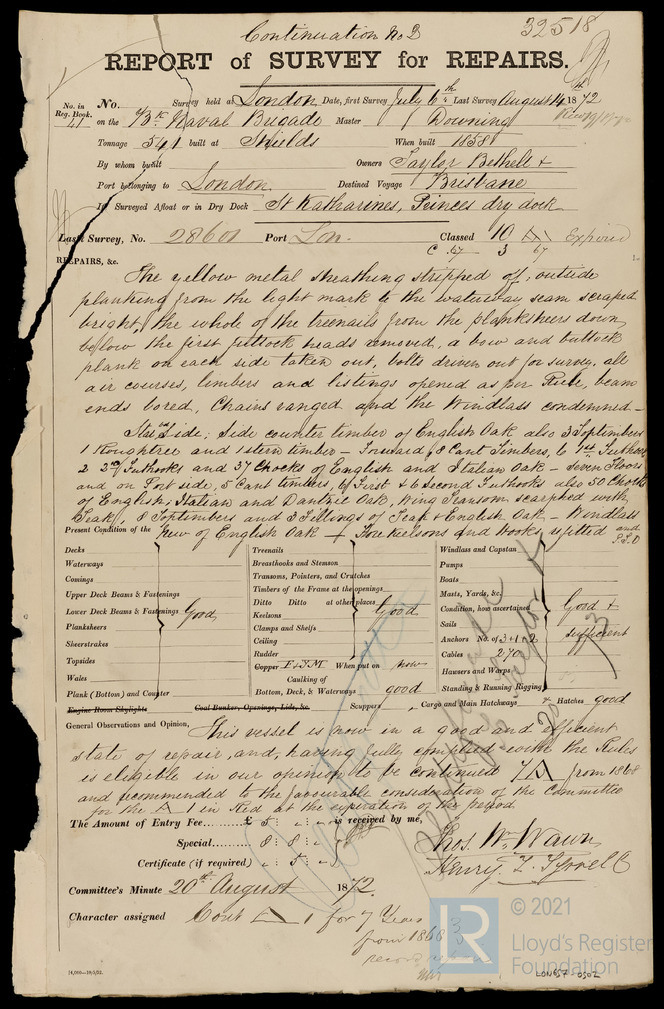 Continuation No 3
32518
REPORT of SURVEY for REPAIRS.
No. in Reg. Book. 41
No. Survey held at London Date, first Survey July 6th Last Survey August 14th 1872
on the Bk Naval Brigade Master Downing
Tonnage 541 built at Shields When built 1858
By whom built Owners Taylor Bethell &
Port belonging to London Destined Voyage Brisbane
If Surveyed Afloat or in Dry Dock St Katharines, Princes dry dock
Last Survey, No. 28601 Port Lon. Classed 10 A Expired
C 67 3 67
REPAIRS, &c.
The yellow metal sheathing stripped of, outside
planking from the light mark to the waterway seam scraped
bright, the whole of the treenails from the planksheers down
below the first futtock heads removed, a bow and buttock
plank on each side taken out, bolts driven out for survey, all
air courses, limbers and listings opened as per Rule, beam
ends bored, Chains ranged and the Windlass condemned –
Starbd Side: Side counter timber of English Oak also 3 Toptimbers
1 Roughtree and 1 stern timber – Forward, 8 Cant Timbers, 6 1st Futtocks
2 2nd Futhooks and 37 Chocks of English and Italian Oak – seven Floors
and on Port side, 5 Cant timbers, 6 First & 6 Second Futhooks also 50 Chocks
of English, Italian and Dantzic Oak, Wing Transom scarphed with
Teak, 8 Toptimbers and 3 Fillings of Teak & English Oak – Windlass
New of English Oak – Fore Keelsons and Hooks refitted and
P.T.O
Present Condition of the
Decks
Waterways
Comings
Upper Deck Beams & Fastenings
Lower Deck Beams & Fastenings Good
Planksheers
Sheerstrakes
Topsides
Wales
Plank (Bottom) and Counter
Engine Room Skylights
Treenails
Breasthooks and Stemson
Transoms, Pointers, and Crutches
Timbers of the Frame at the openings
Ditto Ditto at other places Good
Keelsons
Clamps and Shelfs
Ceiling
Rudder
Copper F & YM When put on now
Caulking of
Bottom, Deck, & Waterways good
Coal Bunker, Openings, Lids, &c.
Windlass and Capstan
Pumps
Boats
Masts, Yards, &c.
Condition, how ascertained Good &
Sails sufficient
Anchors No. of 3+1+2
Cables 270
Hawsers and Warps
Standing & Running Rigging
Scuppers Cargo and Main Hatchways & Hatches good
General Observations and Opinion,
This vessel is now in a good and efficient
state of repair, and, having fully complied with the Rules
is eligible in our opinion to be continued 7 A from 1868
and recommended to the favourable consideration of the Committee
for the A 1 in Red at the expiration of the period.
The Amount of Entry Fee £ 5 : „ : „ is received by me,
Special 8 : 8 : „
Certificate (if required) „ : 5 : „
Thos. Wm. Wawn
Henry T. Tyrrell
Committee's Minute 20th August 1872.
Character assigned Cont A 1 for 7 Years
from 1868
© 2021
LR
Lloyd's Register
Foundation
LON857-0502